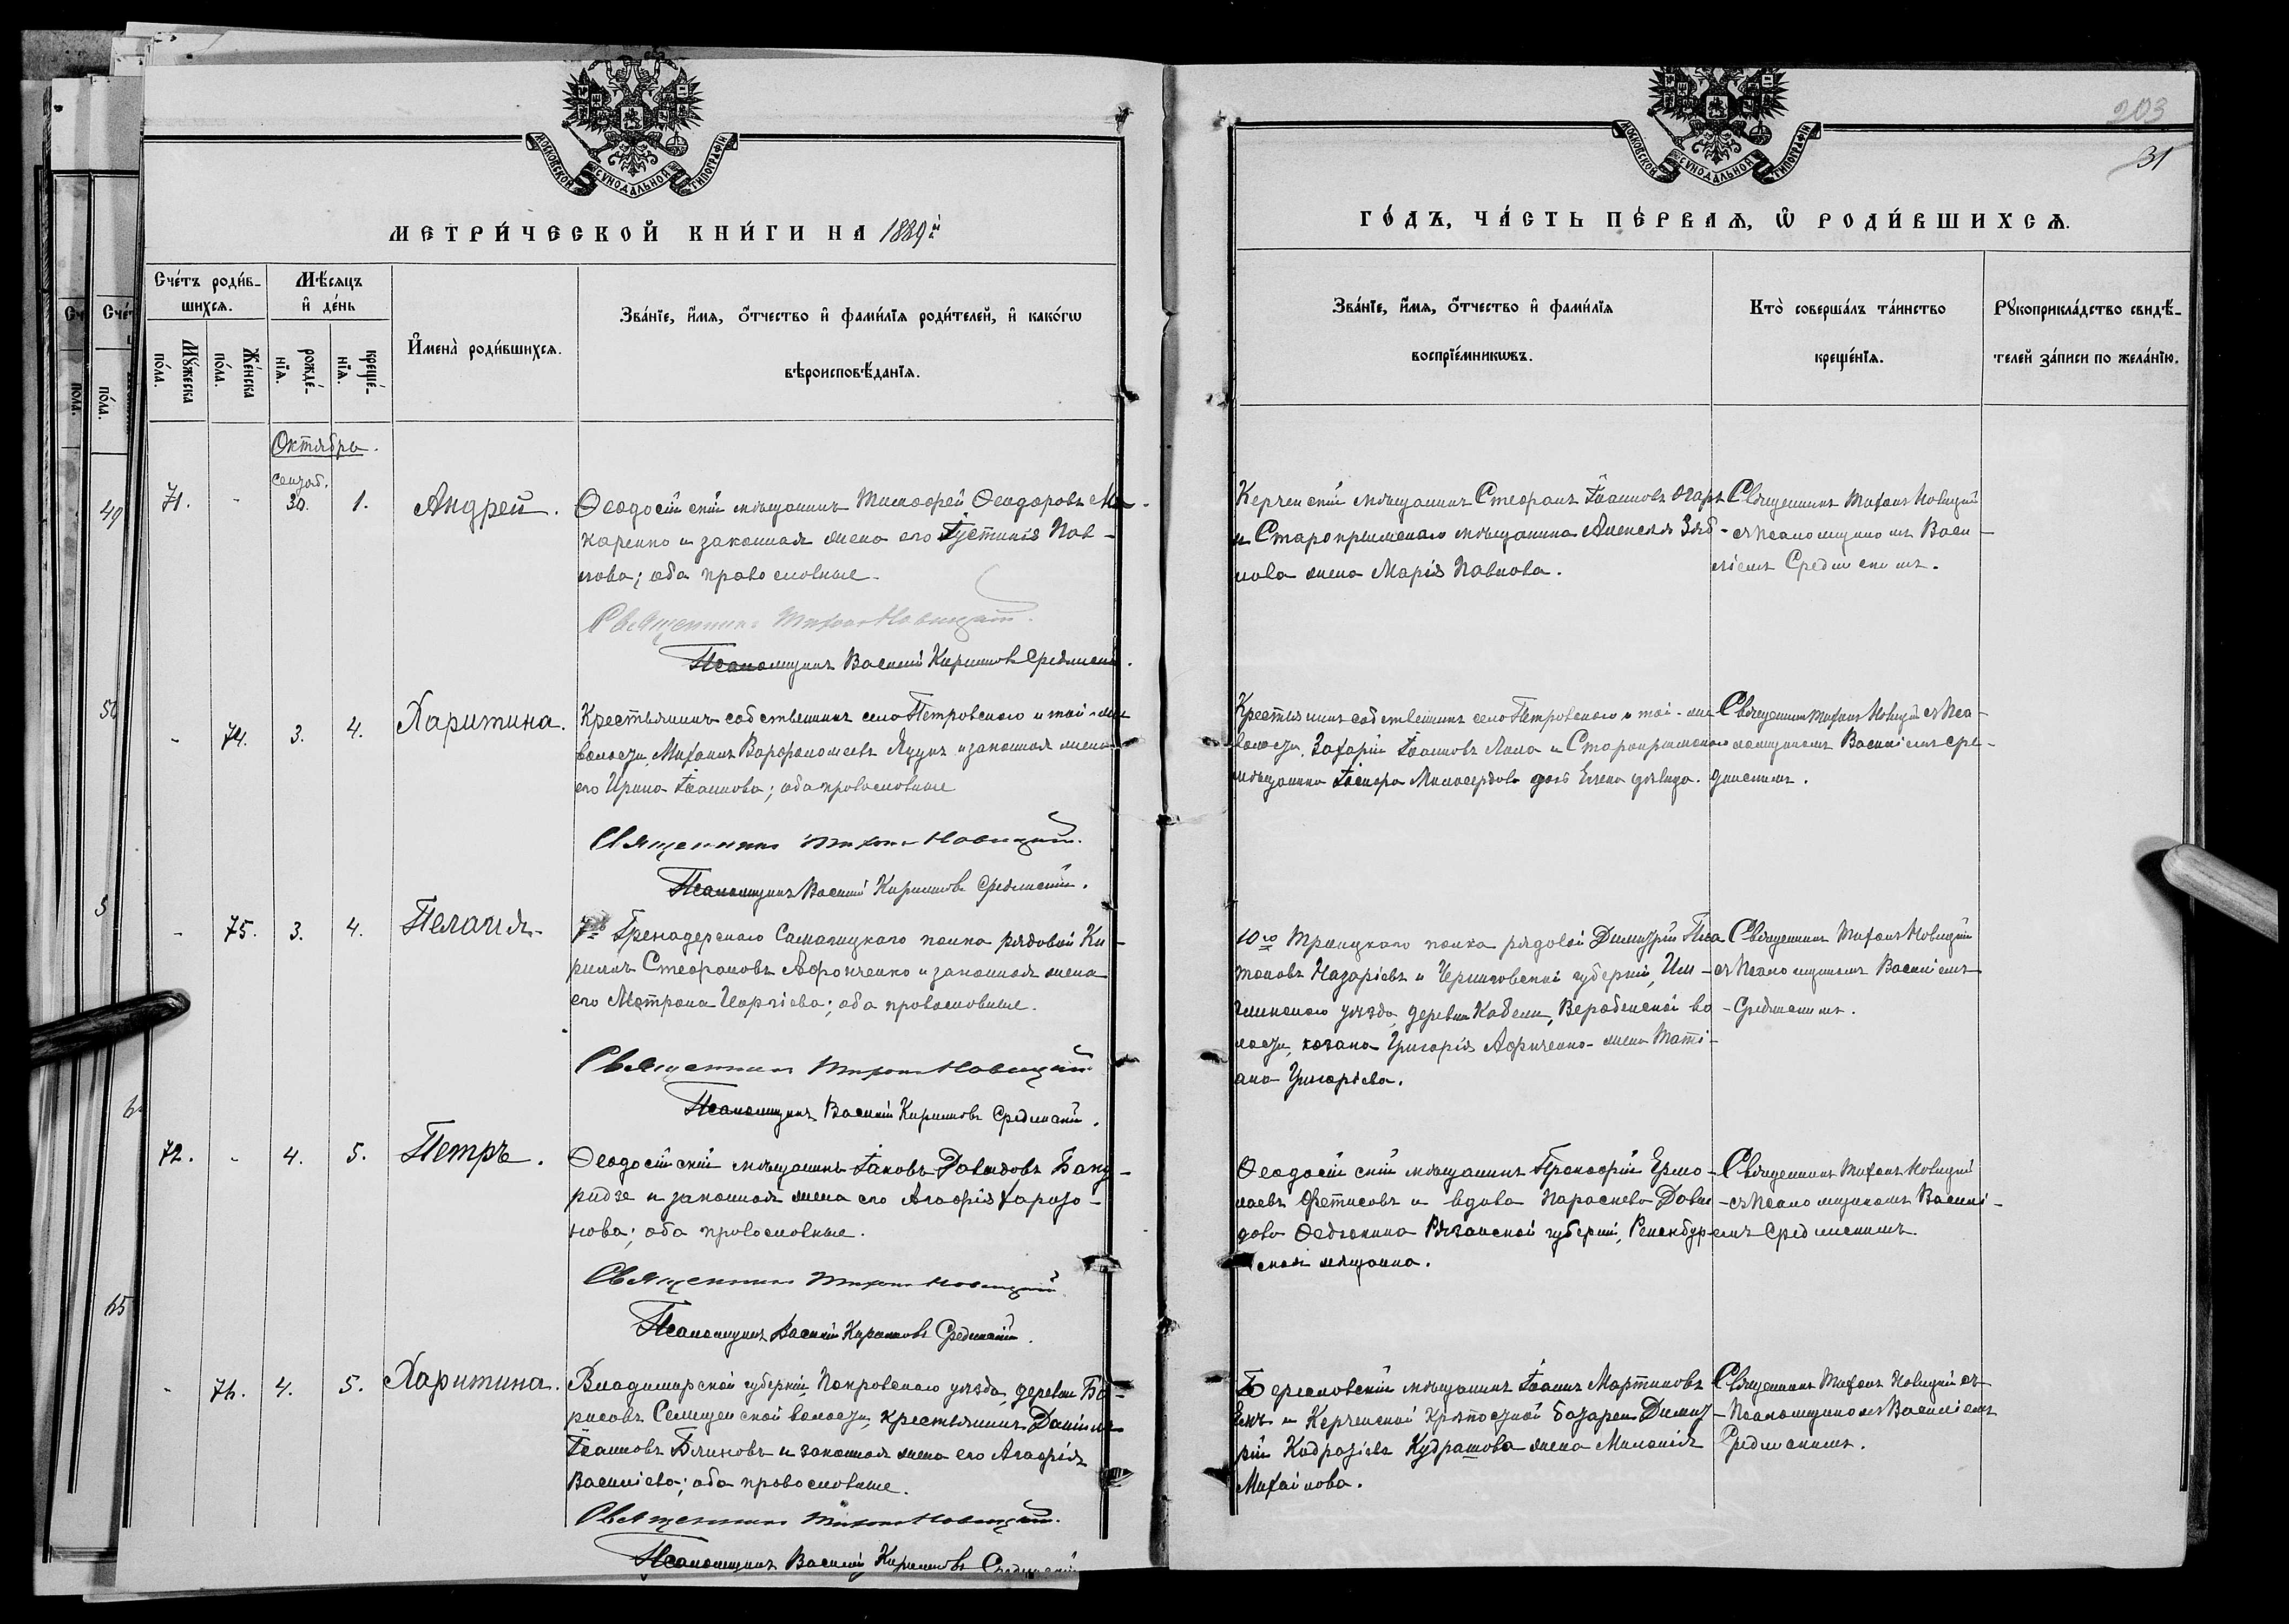 МОСКОВСКОЙ СѴНОДАЛЬНОЙ ТИПОГРАФІИ
МЕТРИ́ЧЕСКОЙ КНИ́ГИ НА 1889й
Сче́тъ роди́в-
шихсѧ.
Мѣ́сѧцъ
и҆ де́нь
Мꙋ́жеска
по́ла.
Же́нска
по́ла.
рожде́-
нїѧ.
креще́-
нїѧ.
И҆мена̀ роди́вшихсѧ.
Зва́нїе, и҆́мѧ, ѻ҆́тчество и҆ фами́лїѧ роди́телей, и҆ како́гѡ
вѣроисповѣ́данїѧ.
Октябрь.
сентяб.
71. - 30. 1. Андрей.
Ѳеодосійскій мѣщанинъ Тимофей Ѳеодоровъ Ма-
каренко и законная жена его Іустинія Пав-
лова; оба православные.
Священникъ Тихонъ Новицкій.
Псаломщикъ Василій Кирилловъ Срединскій.
- 74. 3. 4. Харитина.
Крестьянинъ собственникъ села Петровскаго и той-же
волости, Михаилъ Варфоломеевъ и законная жена
его Ирина Іоаннова; оба православные
Священникъ Тихонъ Новицкій.
Псаломщикъ Василій Кирилловъ Срединскій.
- 75. 3. 4. Пелагія.
7го Гренадерскаго Самогицкаго полка рядовой Ки-
риллъ Стефановъ Афонченко и законная жена
его Матрона Георгіева; оба православные.
Священникъ Тихонъ Новицкій
Псаломщикъ Василій Кирилловъ Срединскій.
72. - 4. 5. Петръ.
Ѳеодосійскій мѣщанинъ Іаковъ Давидовъ
и законная жена его Агафія Харито-
нова; оба православные.
Священникъ Тихонъ Новицкій
Псаломщикъ Василій Кирилловъ Срединскій.
- 76. 4. 5. Харитина.
Владимирской губерніи, Покровскаго уѣзда, деревни Бо-
рисовъ Селищенской волости, крестьянинъ Даніилъ
Іоанновъ Блиновъ и законная жена его Агафія
Василіева; оба православные.
Священникъ Тихонъ Новицкій.
Псаломщикъ Василій Кирилловъ Срединскій
203
31
МОСКОВСКОЙ СѴНОДАЛЬНОЙ ТИПОГРАФІИ
ГО́ДЪ, ЧА́СТЬ ПЕ́РВАѦ, Ѽ РОДИ́ВШИХСѦ.
Зва́нїе, и҆́мѧ, ѻ҆́тчество и҆ фами́лїѧ
воспрїе́мникѡвъ.
Кто̀ соверша́лъ та́инство
креще́нїѧ.
Рꙋкоприкла́дство свидѣ́-
телей за́писи по жела́нїю.
Керченскій мѣщанинъ Стефанъ Іоанновъ
и Старокрымскаго мѣщанина Алексія Зяб-
лова жена Марія Павлова.
Священникъ Тихонъ Новицкій
съ псаломщикомъ Васи-
ліемъ Срединскимъ.
Крестьянинъ собственникъ села Петровскаго и той-же
волости, Захарій Іоанновъ и Старокрымскаго
мѣщанина Милосердова дочь Елена дѣвица.
Священникъ Тихонъ Новицкій съ Пса-
ломщикомъ Василіемъ Сре-
динскимъ.
10го Троицкаго полка рядовой Димитрій Пла-
тоновъ Назаріевъ и Черниговской губерніи,
уѣзда, деревни Вербенской во-
лости, козака Григорія Афонченко жена Таті-
ана Григоріева.
Священникъ Тихонъ Новицкій
съ Псаломщикомъ Василіемъ
Срединскимъ.
Ѳеодосійскій мѣщанинъ Прокофій Ермо-
лаевъ Фетисовъ и вдова Параскева Дави-
дова Рязанской губерніи, Раненбур-
ская мѣщанка.
Священникъ Тихонъ Новицкій
съ Псаломщикомъ Василі-
емъ Срединскимъ.
мѣщанинъ Іоаннъ Мартиновъ
и Керченской крѣпостной батареи Димит-
рій Кудрашова жена Меланія
Михайлова.
Священникъ Тихонъ Новицкій съ
Псаломщикомъ Василіемъ
Срединскимъ.